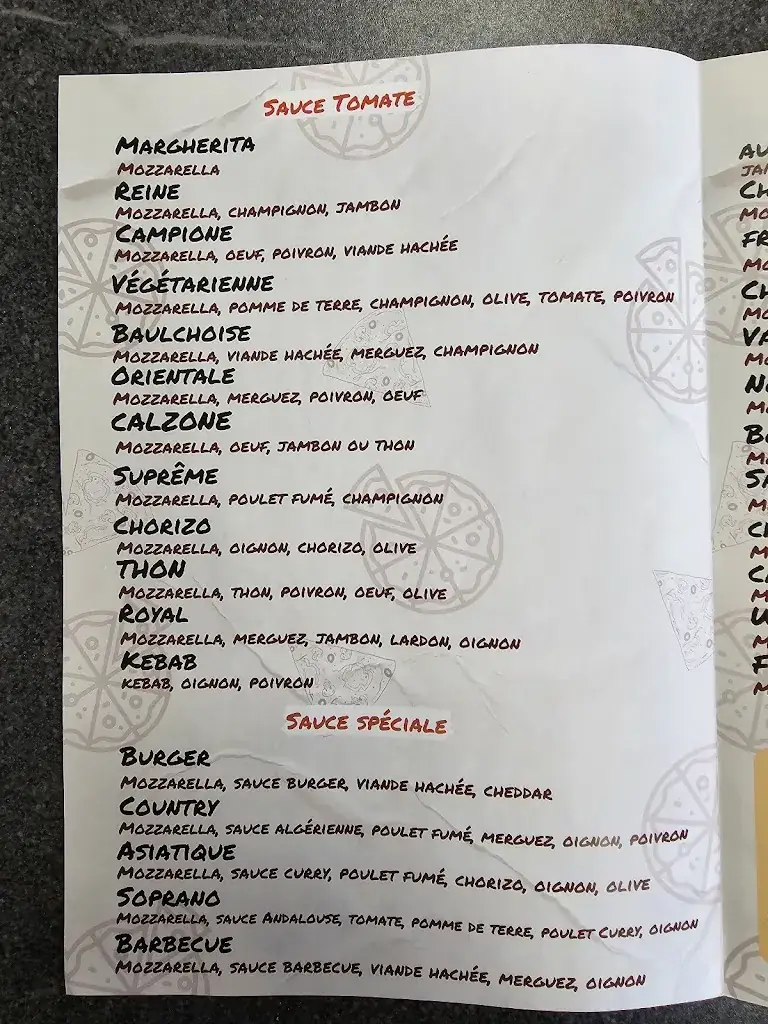 SAUCE TOMATE
MARGHERITA
MOZZARELLA
REINE
MOZZARELLA, CHAMPIGNON, JAMBON
CAMPIONE
MOZZARELLA, OEUF, POIVRON, VIANDE HACHÉE
VÉGÉTARIENNE
MOZZARELLA, POMME DE TERRE, CHAMPIGNON, OLIVE, TOMATE, POIVRON
BAULCHOISE
MOZZARELLA, VIANDE HACHÉE, MERGUEZ, CHAMPIGNON
ORIENTALE
MOZZARELLA, MERGUEZ, POIVRON, OEUF
CALZONE
MOZZARELLA, OEUF, JAMBON OU THON
SUPRÊME
MOZZARELLA, POULET FUMÉ, CHAMPIGNON
CHORIZO
MOZZARELLA, OIGNON, CHORIZO, OLIVE
THON
MOZZARELLA, THON, POIVRON, OEUF, OLIVE
ROYAL
MOZZARELLA, MERGUEZ, JAMBON, LARDON, OIGNON
KEBAB
KEBAB, OIGNON, POIVRON
SAUCE SPÉCIALE
BURGER
MOZZARELLA, SAUCE BURGER, VIANDE HACHÉE, CHEDDAR
COUNTRY
MOZZARELLA, SAUCE ALGÉRIENNE, POULET FUMÉ, MERGUEZ, OIGNON, POIVRON
ASIATIQUE
MOZZARELLA, SAUCE CURRY, POULET FUMÉ, CHORIZO, OIGNON, OLIVE
SOPRANO
MOZZARELLA, SAUCE ANDALOUSE, TOMATE, POMME DE TERRE, POULET CURRY, OIGNON
BARBECUE
MOZZARELLA, SAUCE BARBECUE, VIANDE HACHÉE, MERGUEZ, OIGNON